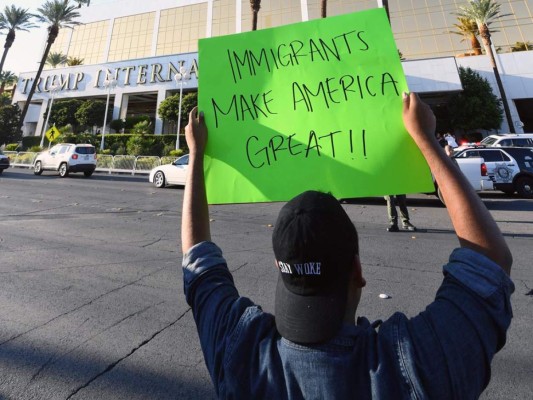 TRUMP INTERNA
IMMIGRANTS
MAKE AMERICA
GREAT!!
STAY WOKE